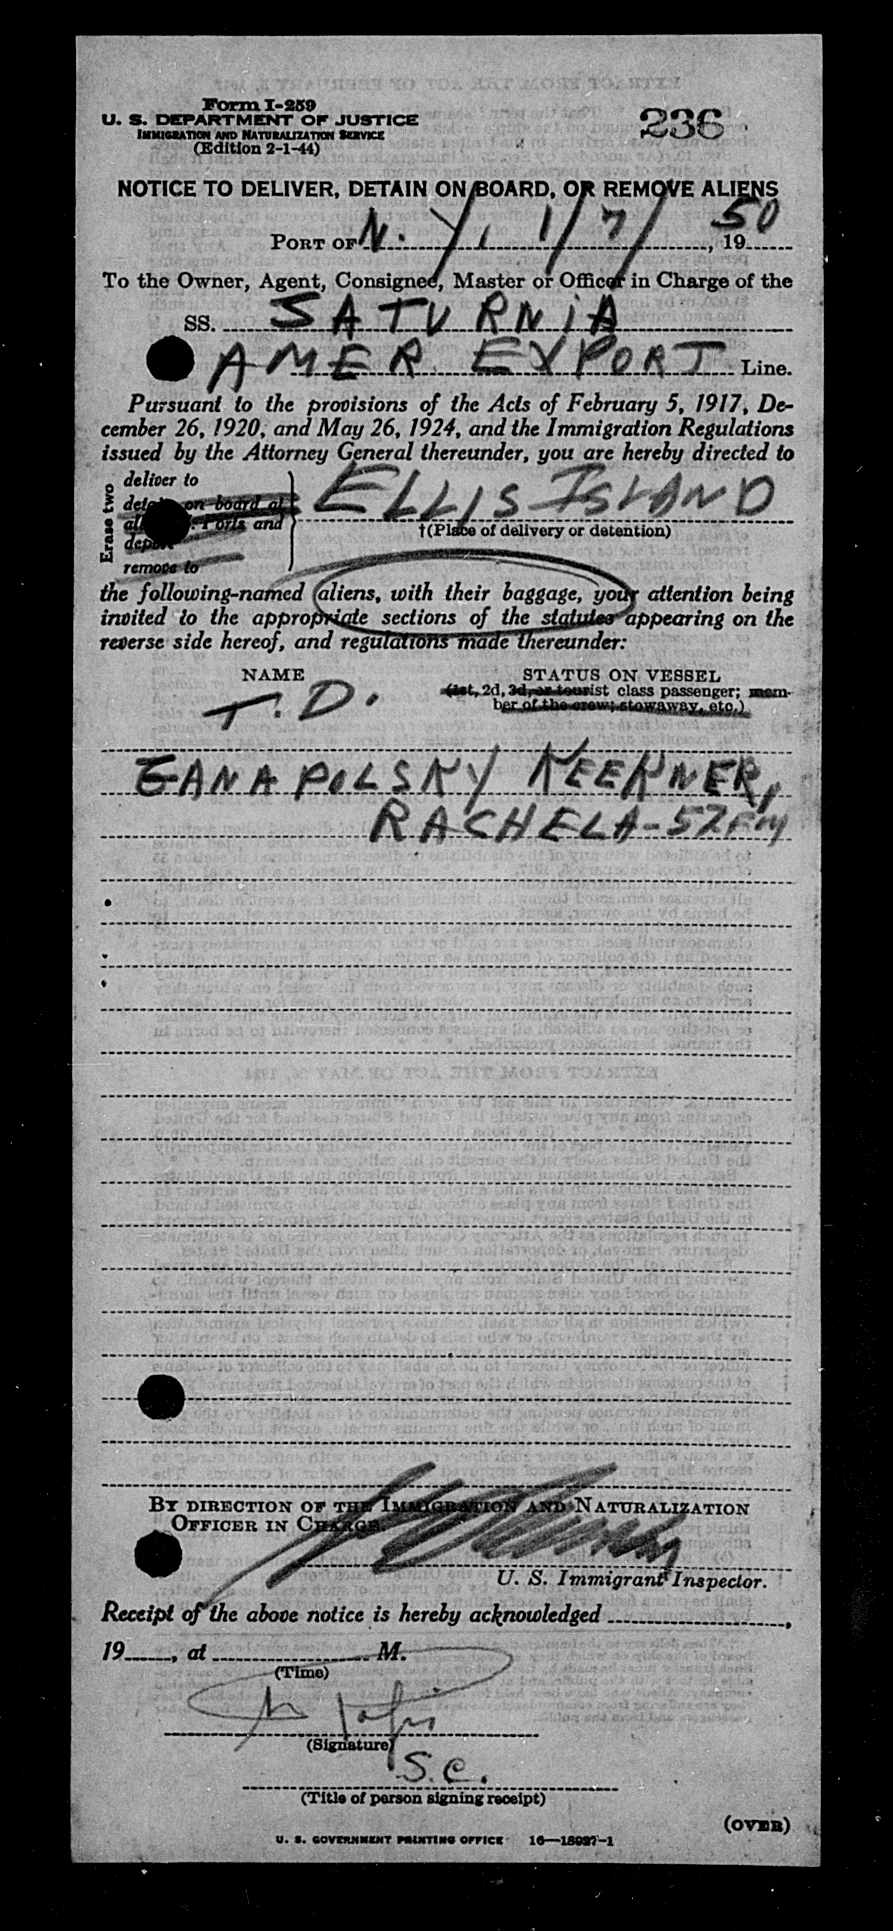 Form I-259
U. S. DEPARTMENT OF JUSTICE
IMMIGRATION AND NATURALIZATION SERVICE
(Edition 2-1-44)
236
NOTICE TO DELIVER, DETAIN ON BOARD, OR REMOVE ALIENS
PORT OF N. Y. 1/7/, 1950
To the Owner, Agent, Consignee, Master or Officer in Charge of the
SS. SATURNIA
AMER EXPORT Line.
Pursuant to the provisions of the Acts of February 5, 1917, De-
cember 26, 1920, and May 26, 1924, and the Immigration Regulations
issued by the Attorney General thereunder, you are hereby directed to
Erase two
deliver to
detain on board at
all Ports and
deport
remove to
ELLIS ISLAND
†(Place of delivery or detention)
the following-named aliens, with their baggage, your attention being
invited to the appropriate sections of the statutes appearing on the
reverse side hereof, and regulations made thereunder:
NAME
STATUS ON VESSEL
(1st, 2d, 3d, or tourist class passenger; mem-
ber of the crew; stowaway, etc.)
T. D.
GANAPOLSKY KEEKNER,
RACHELA-57FM
BY DIRECTION OF THE IMMIGRATION AND NATURALIZATION
OFFICER IN CHARGE.
U. S. Immigrant Inspector.
Receipt of the above notice is hereby acknowledged ,
19 , at M.
(Time)
(Signature)
S.C.
(Title of person signing receipt)
(OVER)
U. S. GOVERNMENT PRINTING OFFICE 16—18927-1